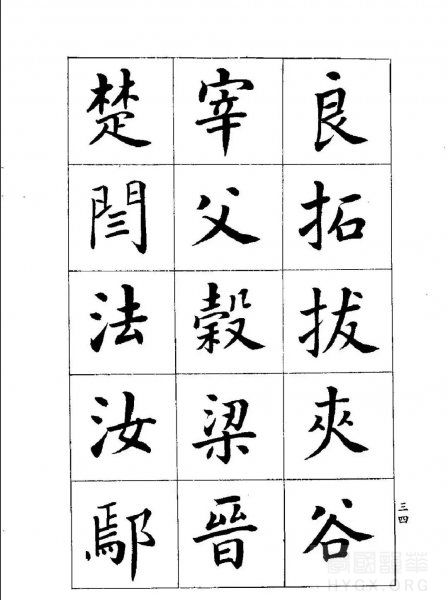 良拓拔夾谷
宰父穀梁晉
楚閆法汝鄢
三四
HYGX.ORG